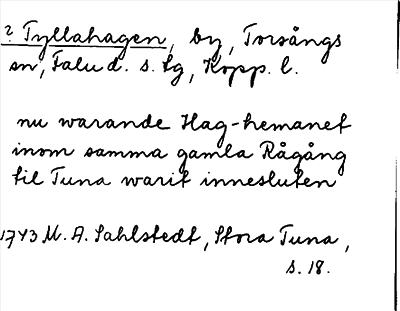 ? Tyllahagen, by, Torsångs
sn, Falu d. s. lg, Kopp. l.
nu warande Hag-hemanet
inom samma gamla Rågång
til Tuna warit innesluten
1743 M. A. Sahlstedt, Stora Tuna,
s. 18.